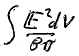 ∫ E²dV / 8π